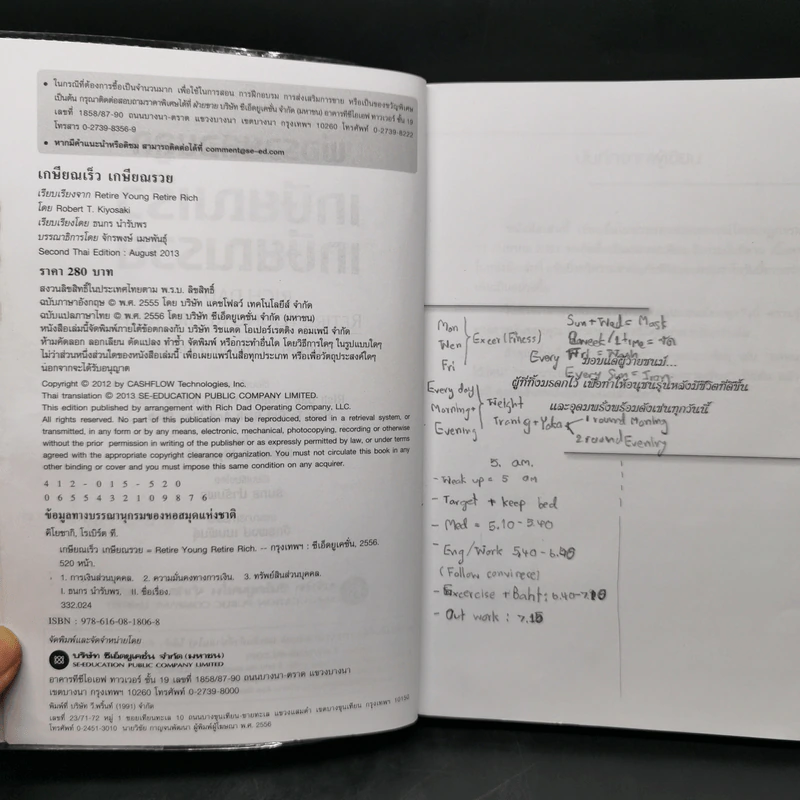 • ในกรณีที่ต้องการซื้อเป็นจำนวนมาก เพื่อใช้ในการสอน การฝึกอบรม การส่งเสริมการขาย หรือเป็นของขวัญพิเศษ
เป็นต้น กรุณาติดต่อสอบถามราคาพิเศษได้ที่ ฝ่ายขาย บริษัท ซีเอ็ดยูเคชั่น จำกัด (มหาชน) อาคารทีซีไอเอฟ ทาวเวอร์ ชั้น 19
เลขที่ 1858/87-90 ถนนบางนา-ตราด แขวงบางนา เขตบางนา กรุงเทพฯ 10260 โทรศัพท์ 0-2739-8222
โทรสาร 0-2739-8356-9
• หากมีคำแนะนำหรือติชม สามารถติดต่อได้ที่ comment@se-ed.com
เกษียณเร็ว เกษียณรวย
เรียบเรียงจาก Retire Young Retire Rich
โดย Robert T. Kiyosaki
เรียบเรียงโดย ธนกร นำรับพร
บรรณาธิการโดย จักรพงษ์ เมษพันธุ์
Second Thai Edition : August 2013
ราคา 280 บาท
สงวนลิขสิทธิ์ในประเทศไทยตาม พ.ร.บ. ลิขสิทธิ์
ฉบับภาษาอังกฤษ © พ.ศ. 2555 โดย บริษัท แคชโฟลว์ เทคโนโลยีส์ จำกัด
ฉบับแปลภาษาไทย © พ.ศ. 2556 โดย บริษัท ซีเอ็ดยูเคชั่น จำกัด (มหาชน)
หนังสือเล่มนี้จัดพิมพ์ภายใต้ข้อตกลงกับ บริษัท ริชแดด โอเปอร์เรตติง คอมเพนี จำกัด
ห้ามคัดลอก ลอกเลียน ดัดแปลง ทำซ้ำ จัดพิมพ์ หรือกระทำอื่นใด โดยวิธีการใดๆ ในรูปแบบใดๆ
ไม่ว่าส่วนหนึ่งส่วนใดของหนังสือเล่มนี้ เพื่อเผยแพร่ในสื่อทุกประเภท หรือเพื่อวัตถุประสงค์ใดๆ
นอกจากจะได้รับอนุญาต
Copyright © 2012 by CASHFLOW Technologies, Inc.
Thai translation © 2013 SE-EDUCATION PUBLIC COMPANY LIMITED.
This edition published by arrangement with Rich Dad Operating Company, LLC.
All rights reserved. No part of this publication may be reproduced, stored in a retrieval system, or
transmitted, in any form or by any means, electronic, mechanical, photocopying, recording or otherwise
without the prior permission in writing of the publisher or as expressly permitted by law, or under terms
agreed with the appropriate copyright clearance organization. You must not circulate this book in any
other binding or cover and you must impose this same condition on any acquirer.
4 1 2 - 0 1 5 - 5 2 0
0 6 5 5 4 3 2 1 0 9 8 7 6
ข้อมูลทางบรรณานุกรมของหอสมุดแห่งชาติ
คิโยซากิ, โรเบิร์ต ที.
เกษียณเร็ว เกษียณรวย = Retire Young Retire Rich. -- กรุงเทพฯ : ซีเอ็ดยูเคชั่น, 2556.
520 หน้า.
1. การเงินส่วนบุคคล. 2. ความมั่นคงทางการเงิน. 3. ทรัพย์สินส่วนบุคคล.
I. ธนกร นำรับพร. II. ชื่อเรื่อง.
332.024
ISBN : 978-616-08-1806-8
จัดพิมพ์และจัดจำหน่ายโดย
บริษัท ซีเอ็ดยูเคชั่น จำกัด (มหาชน)
SE-EDUCATION PUBLIC COMPANY LIMITED
อาคารทีซีไอเอฟ ทาวเวอร์ ชั้น 19 เลขที่ 1858/87-90 ถนนบางนา-ตราด แขวงบางนา
เขตบางนา กรุงเทพฯ 10260 โทรศัพท์ 0-2739-8000
พิมพ์ที่ บริษัท วี.พริ้นท์ (1991) จำกัด
เลขที่ 23/71-72 หมู่ 1 ซอยเทียนทะเล 10 ถนนบางขุนเทียน-ชายทะเล แขวงแสมดำ เขตบางขุนเทียน กรุงเทพฯ 10150
โทรศัพท์ 0-2451-3010 นายวิชัย กาญจนพัฒนา ผู้พิมพ์ผู้โฆษณา พ.ศ. 2556
Mon
Wen
Fri
Excer (Fitness)
Sun + Wed = Mask
week / 1 time =
Every = Wash
Every Sun = Iron
มอบแด่ผู้วายชนม์...
ผู้ที่ทิ้งมรดกไว้ เพื่อทำให้อนุชนรุ่นหลังมีชีวิตที่ดีขึ้น
และอุดมพรั่งพร้อมดังเช่นทุกวันนี้
Every day
Morning +
Evening
Weight
+ Yoka
1 round Morning
2 round Evening
5. am.
- Weak up = 5 am
- Target + keep bed
- Med = 5.10 - 5.40
- Eng/Work 5.40 -
(Follow convinece)
- Excercise + Baht: 6.40 -
- Out work : 7.15